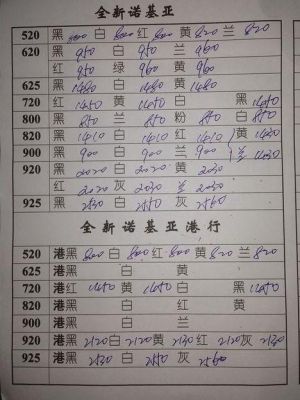 全新诺基亚
520 黑 800 白 800 红 800 黄 820 兰 820
620 黑 950 白 950 兰 960
红 950 绿 960 黄 960
625 黑 1480 白 1480 黄 1480
720 红 1450 黄 1450 白 黑 1450
800 黑 850 兰 850 粉 850 白
820 黑 1410 白 1410 红 1410 黄 1430
900 黑 900 白 900 兰 900
920 黑 2020 白 2020 黄 2030
红 2020 灰 2030 兰 2030
925 黑 2530 白 2550 灰 2560
全新诺基亚港行
520 港黑 800 白 800 红 800 黄 820 兰 820
625 港黑 白 黄
720 港红 1450 黄 1450 白 黑 1450
820 港黑 白 红 黄
900 港黑 白 兰
920 港黑 2120 白 2120 黄 2130 红 2120 灰 2130
925 港黑 2530 白 2550 灰 2560